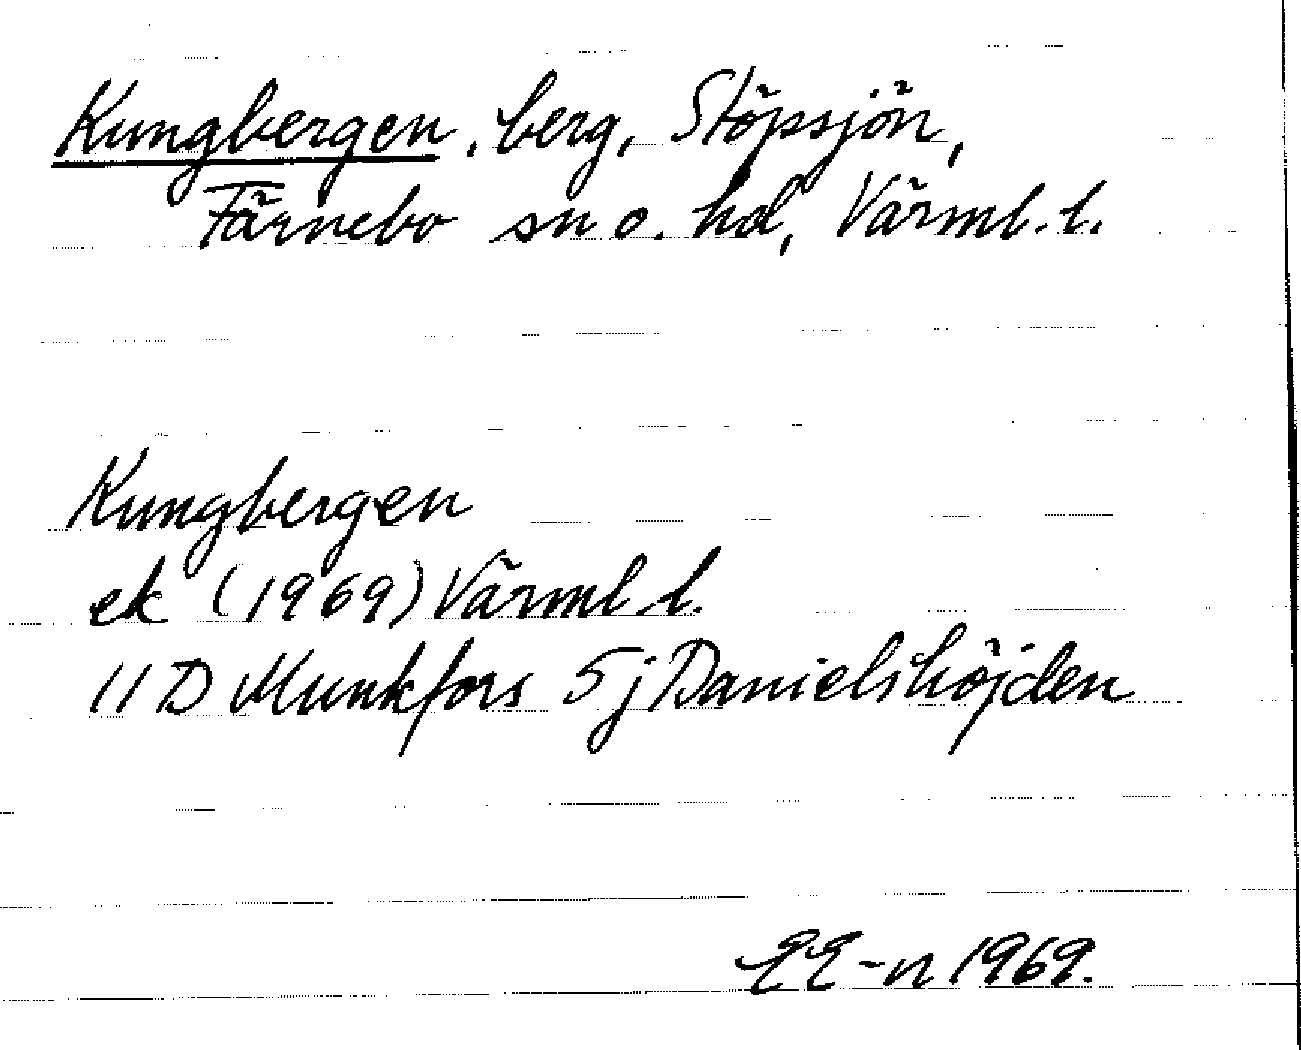 Kungbergen, berg, Stöpsjön,
Färnebo sn o. hd, Värml. l.
Kungbergen
ek (1969) Värml l.
11 D Munkfors 5 j Danielshöjden
EE-n 1969.